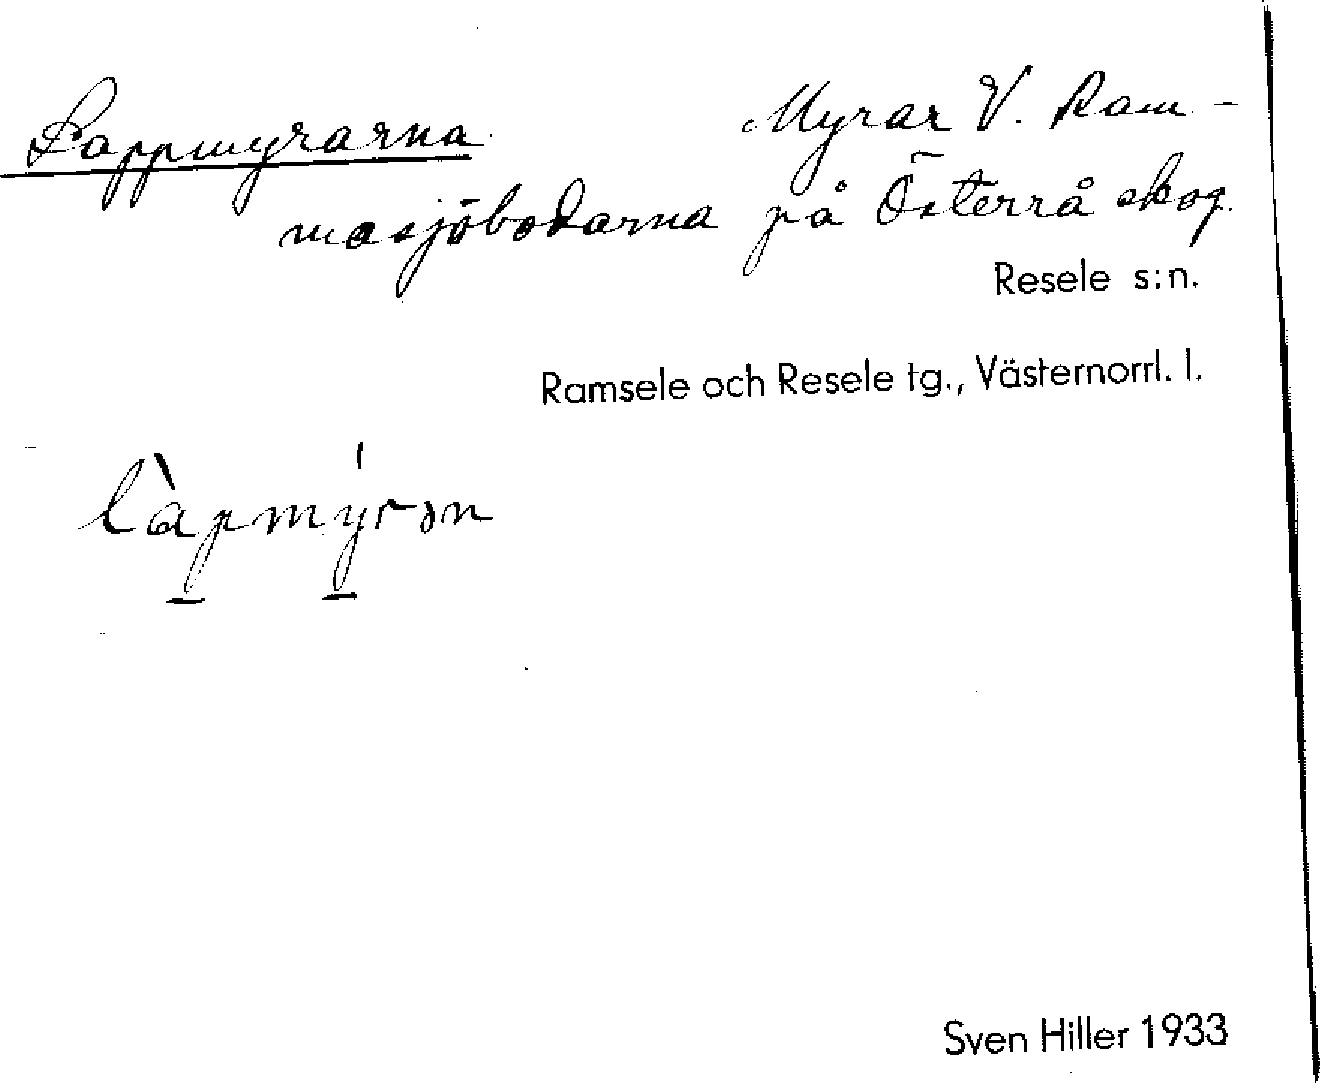 Lappmyrarna Myrar V. Ram-
masjöbodarna på Österrå skog.
Resele s:n.
Ramsele och Resele tg., Västernorrl. l.
làpmýrɔn
Sven Hiller 1933